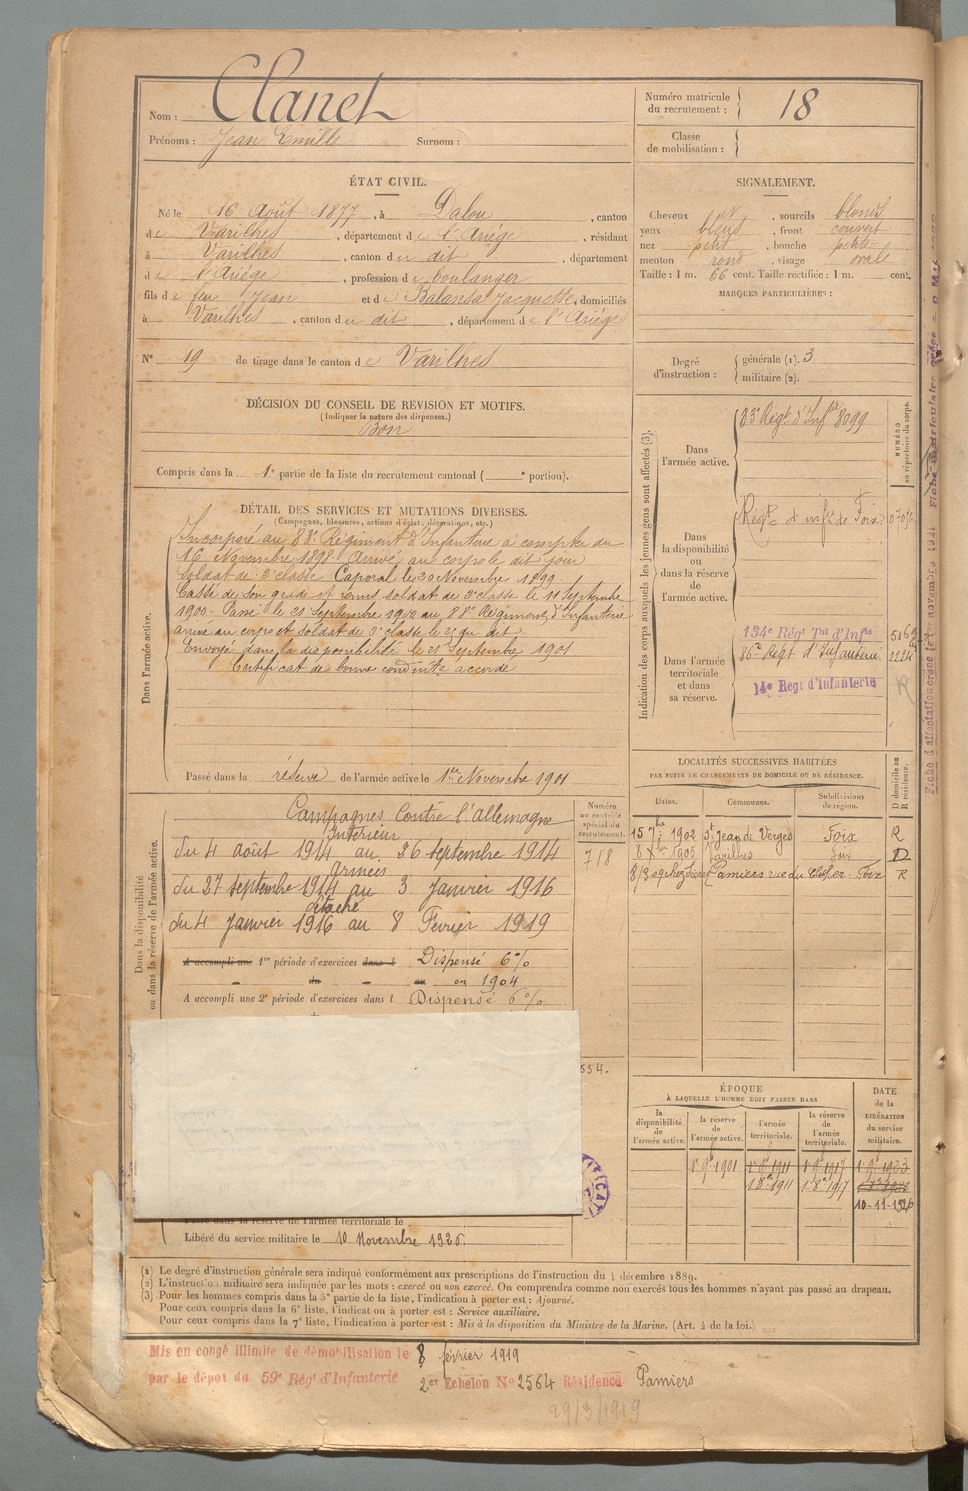 Nom : Clanet
Prénoms : Jean Emille Surnom :
Numéro matricule du recrutement : 18
Classe de mobilisation :
ÉTAT CIVIL.
Né le 16 Août 1877, à Dalou, canton
de Varilhes, département de l'Ariége, résidant
à Varilhes, canton du dit, département
de l'Ariége, profession de boulanger
fils de feu Jean et de Balansa Jacquette, domiciliés
à Varilhes, canton du dit, département de l'Ariége
N° 19 de tirage dans le canton de Varilhes
SIGNALEMENT.
Cheveux , sourcils blonds
yeux bleus, front couvert
nez petit, bouche petite
menton rond, visage ovale
Taille : 1 m. 66 cent. Taille rectifiée : 1 m. cent.
MARQUES PARTICULIÈRES :
Degré d'instruction : générale (1). 3
militaire (2).
DÉCISION DU CONSEIL DE REVISION ET MOTIFS.
(Indiquer la nature des dispenses.)
Bon
Compris dans la 1e partie de la liste du recrutement cantonal ( e portion).
DÉTAIL DES SERVICES ET MUTATIONS DIVERSES.
(Campagnes, blessures, actions d'éclat, décorations, etc.)
Dans l'armée active.
Incorporé au Régiment d'Infanterie à compter du
16 Novembre 1898. Arrivé au corps le dit jour
soldat de 2e classe. Caporal le 20 Novembre 1899
Cassé de son grade et remis soldat de 2e classe le 11 Septembre
1900. Passé le 21 Septembre au 88e Régiment d'Infanterie
arrivé au corps et soldat de 2e classe le dit
Envoyé dans la disponibilité le 21 Septembre 1901
Certificat de bonne conduite accordé
Passé dans la réserve de l'armée active le 1er Novembre 1901
Indication des corps auxquels les jeunes gens sont affectés (3).
NUMÉRO au répertoire du corps.
Dans l'armée active.
83e Régt d'Infie 8099
Dans la disponibilité ou dans la réserve de l'armée active.
Régt d'infie de Foix
Dans l'armée territoriale et dans sa réserve.
134e Régt Tal d'Infie
86e Régt d'Infanterie
14e Regt d'Infanterie
LOCALITÉS SUCCESSIVES HABITÉES
PAR SUITE DE CHANGEMENTS DE DOMICILE OU DE RÉSIDENCE.
D domicile ou R résidence.
Dates. Communes. Subdivisions de région.
15 7bre 1902 St Jean de Verges Foix R
8 Xbre 1905 Varilhes Foix D
Pamiers rue du Foix R
Dans la disponibilité ou dans la réserve de l'armée active.
Numéro au contrôle spécial du recrutement.
718
Campagnes Contre l'allemagne
Intérieur
du 4 août 1914 au 26 septembre 1914
Armées
du 27 septembre 1914 au 3 Janvier 1916
détaché
du 4 Janvier 1916 au 8 Février 1919
A accompli une 1re période d'exercices dans l Dispensé 6%
du au en 1904
A accompli une 2e période d'exercices dans l Dispensé 6%
554.
ÉPOQUE
À LAQUELLE L'HOMME DOIT PASSER DANS
la disponibilité de l'armée active.
la réserve de l'armée active.
l'armée territoriale.
la réserve de l'armée territoriale.
DATE de la LIBÉRATION du service militaire.
10-11-1926
Passé dans la réserve de l'armée territoriale le
Libéré du service militaire le 10 Novembre 1926.
(1) Le degré d'instruction générale sera indiqué conformément aux prescriptions de l'instruction du 4 décembre 1889.
(2) L'instruction militaire sera indiquée par les mots : exercé ou non exercé. On comprendra comme non exercés tous les hommes n'ayant pas passé au drapeau.
(3) Pour les hommes compris dans la 5e partie de la liste, l'indication à porter est : Ajourné.
Pour ceux compris dans la 6e liste, l'indication à porter est : Service auxiliaire.
Pour ceux compris dans la 7e liste, l'indication à porter est : Mis à la disposition du Ministre de la Marine. (Art. 4 de la loi.)
Mis en congé illimité de démobilisation le 8 février 1919
par le dépot du 59e Régt d'Infanterie 2er Echelon N° 2564 Résidence Pamiers
29/3/1919